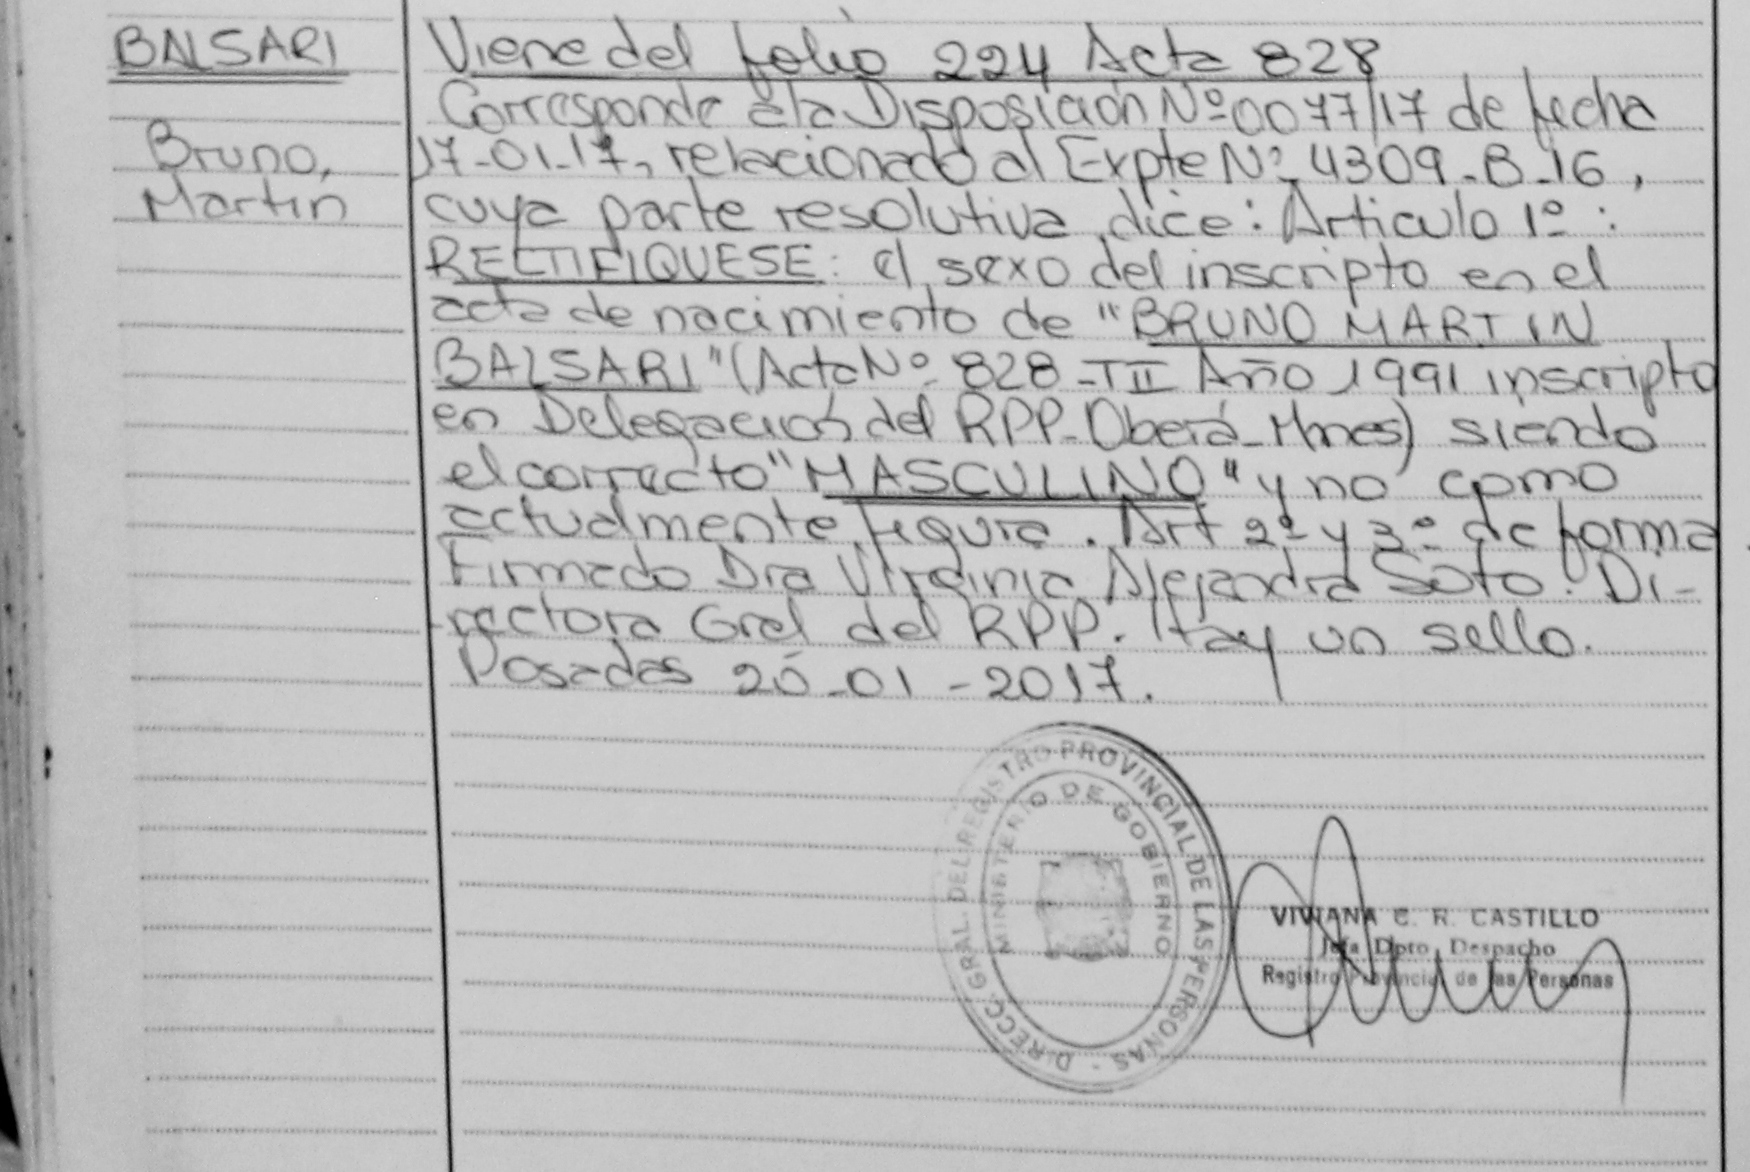 BALSARI
Bruno,
Martin
Viene del folio 224 Acta 828
Corresponde a la Disposición Nº 0077/17 de fecha
17-01-17, relacionado al Expte Nº 4309-B-16,
cuya parte resolutiva dice: Articulo 1º:
RECTIFIQUESE: el sexo del inscripto en el
acta de nacimiento de "BRUNO MARTIN
BALSARI" (Acta Nº 828-TII Año 1991 inscripto
en Delegación del RPP-Oberá-Mnes) siendo
el correcto "MASCULINO" y no como
actualmente figura. Art 2º y 3º de forma
Firmado Dra Virginia Alejandra Soto. Di-
rectora Gral del RPP. Hay un sello.
Posadas 20-01-2017.
DIRECC. GRAL. DEL REGISTRO PROVINCIAL DE LAS PERSONAS -
MINISTERIO DE GOBIERNO
VIVIANA C. R. CASTILLO
Jefa Dpto. Despacho
Registro Provincial de las Personas